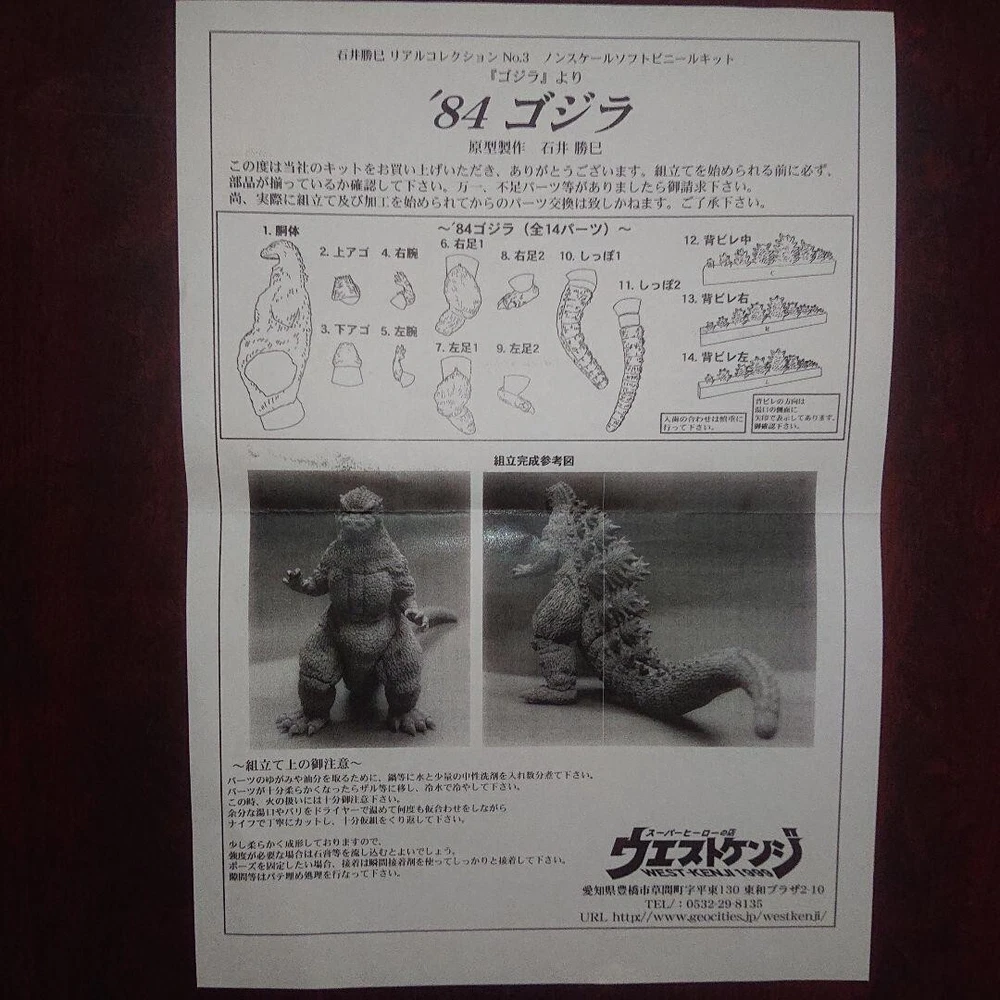 石井勝巳 リアルコレクション No.3　ノンスケールソフトビニールキット
『ゴジラ』より
'84 ゴジラ
原型製作　石井 勝巳
この度は当社のキットをお買い上げいただき、ありがとうございます。組立てを始められる前に必ず、
部品が揃っているか確認して下さい。万一、不足パーツ等がありましたら御請求下さい。
尚、実際に組立て及び加工を始められてからのパーツ交換は致しかねます。ご了承下さい。
～'84ゴジラ（全14パーツ）～
1. 胴体
2. 上アゴ
4. 右腕
6. 右足1
8. 右足2
10. しっぽ1
11. しっぽ2
12. 背ビレ中
13. 背ビレ右
14. 背ビレ左
3. 下アゴ
5. 左腕
7. 左足1
9. 左足2
の合わせは慎重に
行って下さい。
背ビレの方向は
湯口の側面に
矢印で表示してあります。
御確認下さい。
組立完成参考図
～組立て上の御注意～
パーツのゆがみや油分を取るために、鍋等に水と少量の中性洗剤を入れ数分煮て下さい。
パーツが十分柔らかくなったらザル等に移し、冷水で冷やして下さい。
この時、火の扱いには十分御注意下さい。
余分な湯口やバリをドライヤーで温めて何度も仮合わせをしながら
ナイフで丁寧にカットし、十分仮組をくり返して下さい。
少し柔らかく成形しておりますので、
強度が必要な場合は石膏等を流し込むとよいでしょう。
ポーズを固定したい場合、接着は瞬間接着剤を使ってしっかりと接着して下さい。
隙間等はパテ埋め処理を行なって下さい。
スーパーヒーローの店
ウエストケンジ
WEST-KENJI 1999
愛知県豊橋市草間町字平東130 東和プラザ2-10
TEL/：0532-29-8135
URL http://www.geocities.jp/westkenji/